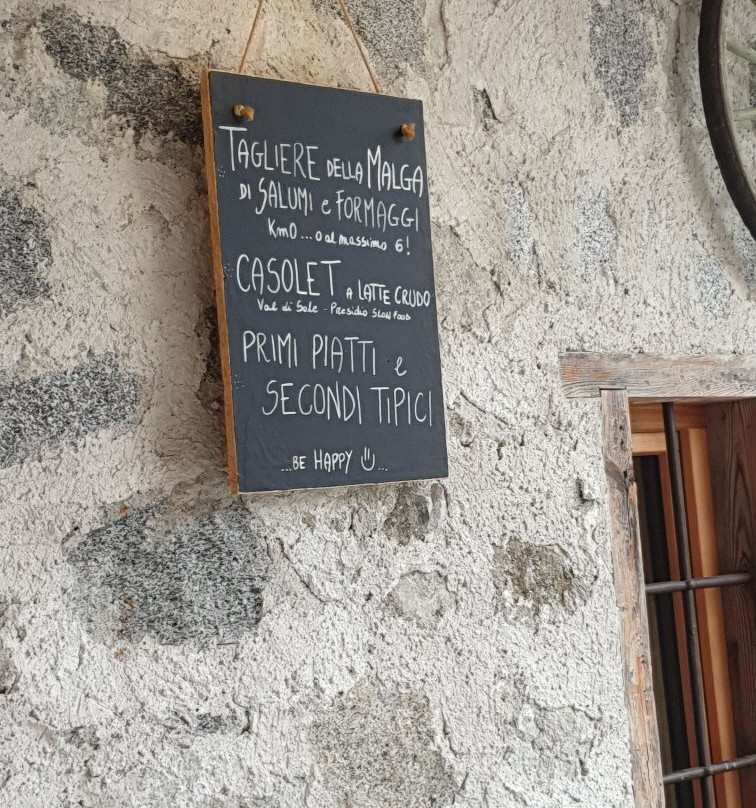 TAGLIERE DELLA MALGA
DI SALUMI e FORMAGGI
Km0...o al massimo 6!
CASOLET A LATTE CRUDO
Val di Sole - Presidio SLOW FOOD
PRIMI PIATTI e
SECONDI TIPICI
...BE HAPPY ...